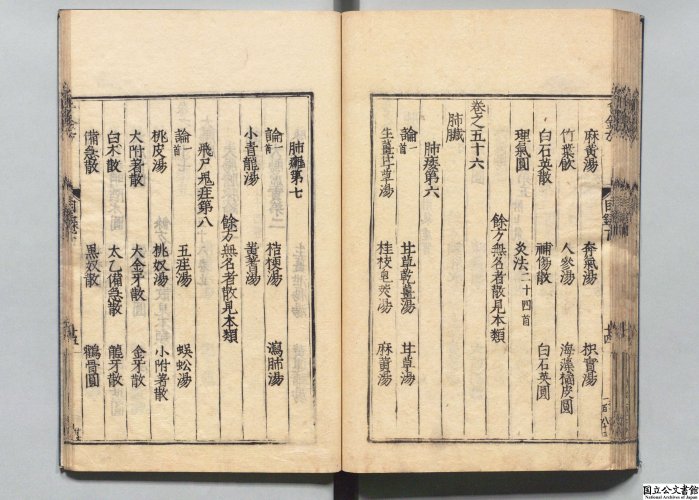 麻黄湯 奔氣湯 枳實湯
竹葉飲 人參湯 海藻橘皮圓
白石英散 補傷散 白石英圓
理氣圓 灸法二十四首
餘方無名者散見本類
卷之五十六
肺臟
肺痿第六
論一首 甘草乾薑湯 甘草湯
生薑甘草湯 桂枝皂莢湯 麻黄湯
肺癰第七
論一首 桔梗湯 瀉肺湯
小青龍湯 黄耆湯
餘方無名者散見本類
飛尸鬼疰第八
論一首 五疰湯 蜈蚣湯
桃皮湯 桃奴湯 小附著散
大附著散 大金牙散 金牙散
白朮散 太乙備急散 龍牙散
備急散 黒奴散 鸛骨圓
国立公文書館
National Archives of Japan